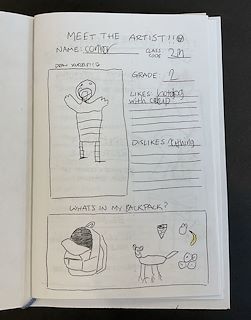 MEET THE ARTIST!!
NAME: connor
CLASS CODE 2M
DRAW YOURSELF
GRADE: 2
LIKES:
with
DISLIKES: nothing
WHAT'S IN MY BACKPACK?